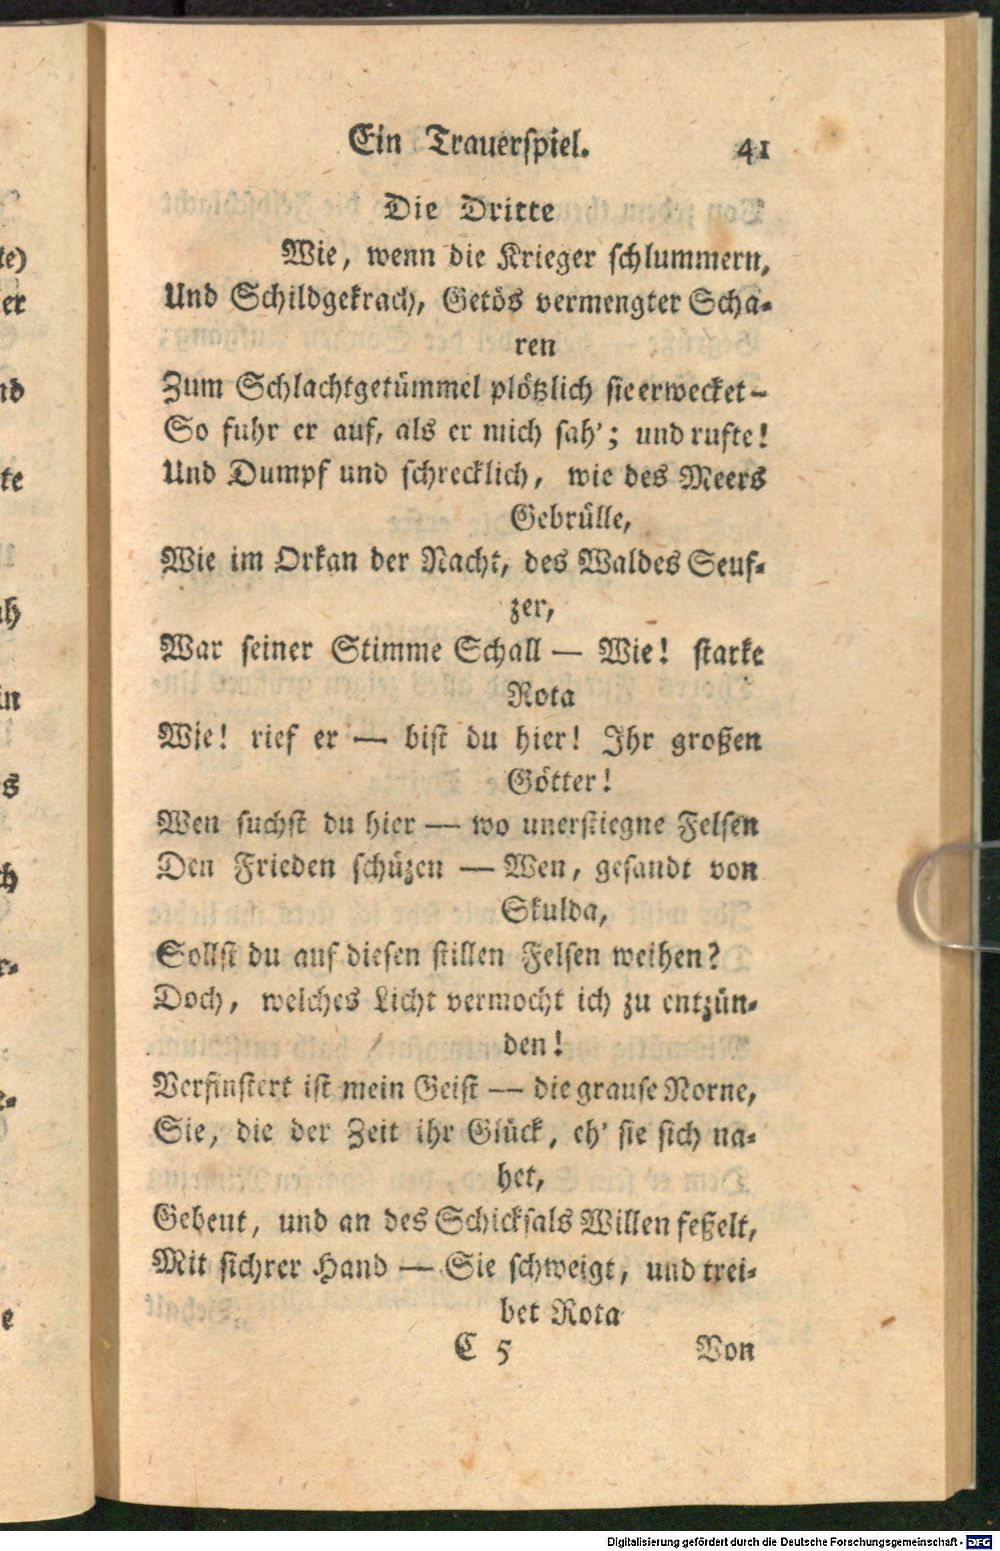 Ein Trauerspiel. 41
Die Dritte
Wie, wenn die Krieger schlummern,
Und Schildgekrach, Getös vermengter Scha-
ren
Zum Schlachtgetümmel plötzlich sie erwecket -
So fuhr er auf, als er mich sah'; und rufte!
Und Dumpf und schrecklich, wie des Meers
Gebrülle,
Wie im Orkan der Nacht, des Waldes Seuf-
zer,
War seiner Stimme Schall — Wie! starke
Rota
Wie! rief er — bist du hier! Ihr großen
Götter!
Wen suchst du hier — wo unerstiegne Felsen
Den Frieden schüzen — Wen, gesandt von
Skulda,
Sollst du auf diesen stillen Felsen weihen?
Doch, welches Licht vermocht ich zu entzün-
den!
Verfinstert ist mein Geist — die grause Norne,
Sie, die der Zeit ihr Glück, eh' sie sich na-
het,
Gebeut, und an des Schicksals Willen feßelt,
Mit sichrer Hand — Sie schweigt, und trei-
bet Rota
C 5 Von
Digitalisierung gefördert durch die Deutsche Forschungsgemeinschaft - DFG